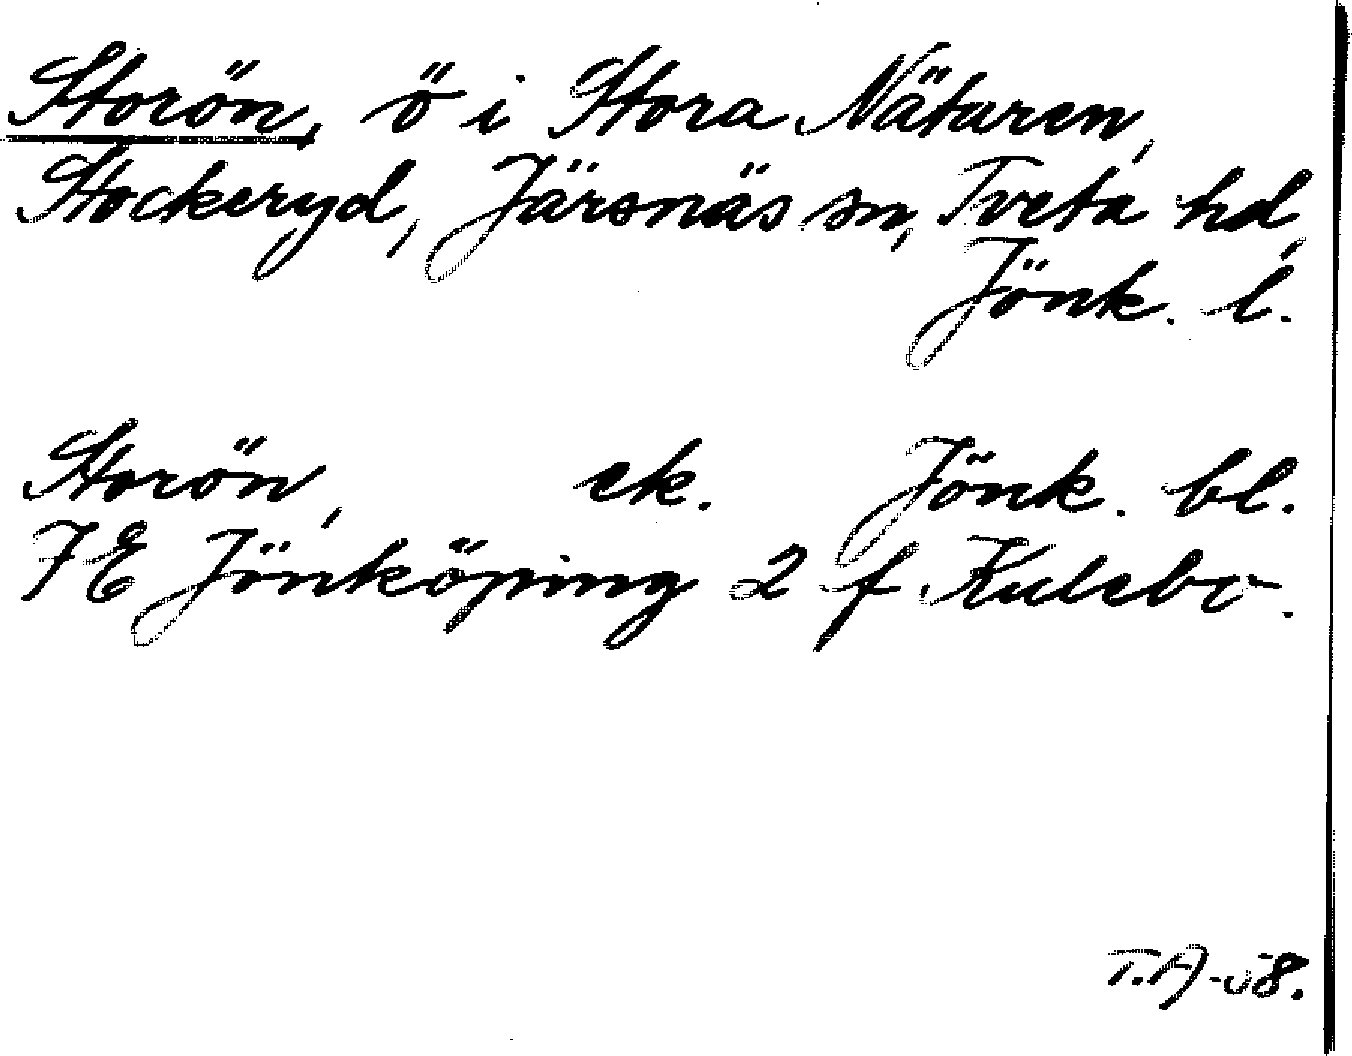 Storön, ö i Stora Nätaren,
Stockeryd, Järsnäs sn, Tveta hd,
Jönk. l.
Storön, ek. Jönk. bl.
7E Jönköping 2 f Kulebo.
T.A-58.